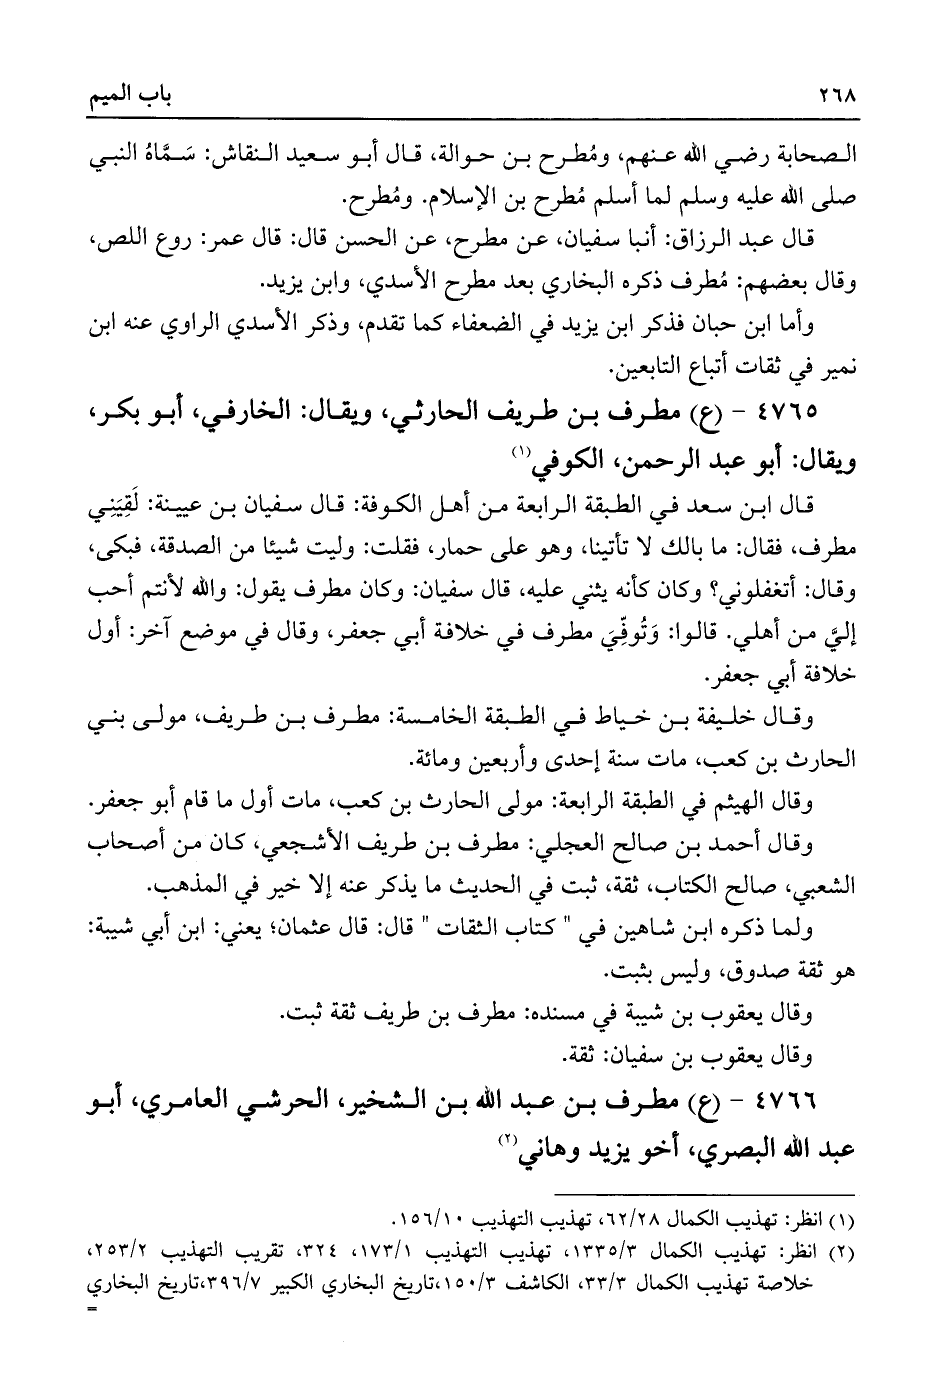 ٢٦٨ باب الميم
الصحابة رضي الله عنهم، ومُطرح بن حوالة، قال أبو سعيد النقاش: سَمَّاهُ النبي
صلى الله عليه وسلم لما أسلم مُطرح بن الإسلام. ومُطرح.
قال عبد الرزاق: أنبا سفيان، عن مطرح، عن الحسن قال: قال عمر: روع اللص،
وقال بعضهم: مُطرف ذكره البخاري بعد مطرح الأسدي، وابن يزيد.
وأما ابن حبان فذكر ابن يزيد في الضعفاء كما تقدم، وذكر الأسدي الراوي عنه ابن
نمير في ثقات أتباع التابعين.
٤٧٦٥ - (ع) مطرف بن طريف الحارثي، ويقال: الخارفي، أبو بكر،
ويقال: أبو عبد الرحمن، الكوفي(١)
قال ابن سعد في الطبقة الرابعة من أهل الكوفة: قال سفيان بن عيينة: لَقِيَنِي
مطرف، فقال: ما بالك لا تأتينا، وهو على حمار، فقلت: وليت شيئا من الصدقة، فبكى،
وقال: أتغفلوني؟ وكان كأنه يثني عليه، قال سفيان: وكان مطرف يقول: والله لأنتم أحب
إليَّ من أهلي. قالوا: وَتُوفِّيَ مطرف في خلافة أبي جعفر، وقال في موضع آخر: أول
خلافة أبي جعفر.
وقال خليفة بن خياط في الطبقة الخامسة: مطرف بن طريف، مولى بني
الحارث بن كعب، مات سنة إحدى وأربعين ومائة.
وقال الهيثم في الطبقة الرابعة: مولى الحارث بن كعب، مات أول ما قام أبو جعفر.
وقال أحمد بن صالح العجلي: مطرف بن طريف الأشجعي، كان من أصحاب
الشعبي، صالح الكتاب، ثقة، ثبت في الحديث ما يذكر عنه إلا خير في المذهب.
ولما ذكره ابن شاهين في " كتاب الثقات " قال: قال عثمان؛ يعني: ابن أبي شيبة:
هو ثقة صدوق، وليس بثبت.
وقال يعقوب بن شيبة في مسنده: مطرف بن طريف ثقة ثبت.
وقال يعقوب بن سفيان: ثقة.
٤٧٦٦ - (ع) مطرف بن عبد الله بن الشخير، الحرشي العامري، أبو
عبد الله البصري، أخو يزيد وهاني(٢)
(١) انظر: تهذيب الكمال ٦٢/٢٨، تهذيب التهذيب ١٥٦/١٠.
(٢) انظر: تهذيب الكمال ١٣٣٥/٣، تهذيب التهذيب ١٧٣/١، ٣٢٤، تقريب التهذيب ٢٥٣/٢،
خلاصة تهذيب الكمال ٣٣/٣، الكاشف ١٥٠/٣،تاريخ البخاري الكبير ٣٩٦/٧،تاريخ البخاري
=